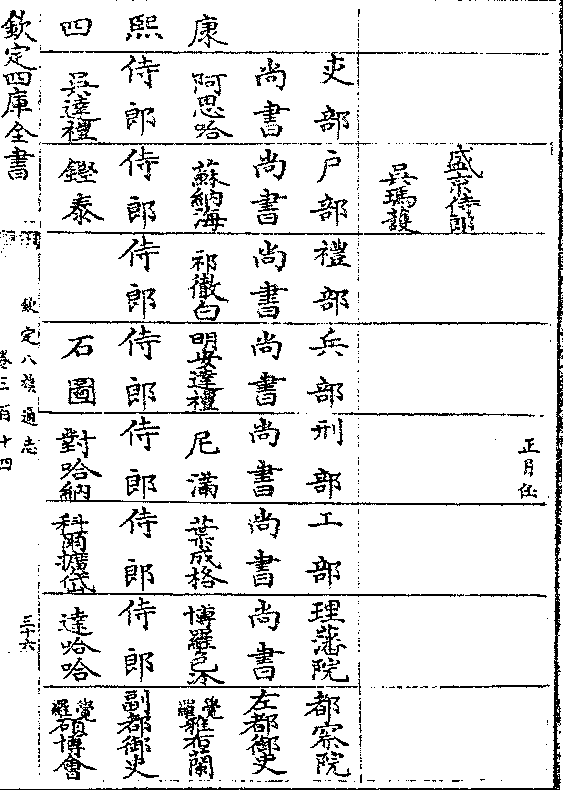 盛京侍郎
吳瑪護
正月任
吏部
尚書
阿思哈
侍郎
吳達禮
戶部
尚書
蘇納海
侍郎
鏗泰
禮部
尚書
祁徹白
侍郎
兵部
尚書
明安達禮
侍郎
石圖
刑部
尚書
尼滿
侍郎
對哈納
工部
尚書
葉成格
侍郎
科爾擴岱
理藩院
尚書
博羅色冷
侍郎
達哈哈
都察院
左都御史
覺羅雅布蘭
副都御史
覺羅碩博會
康熙四
欽定四庫全書
欽定八旗通志
卷三百十四
三十六